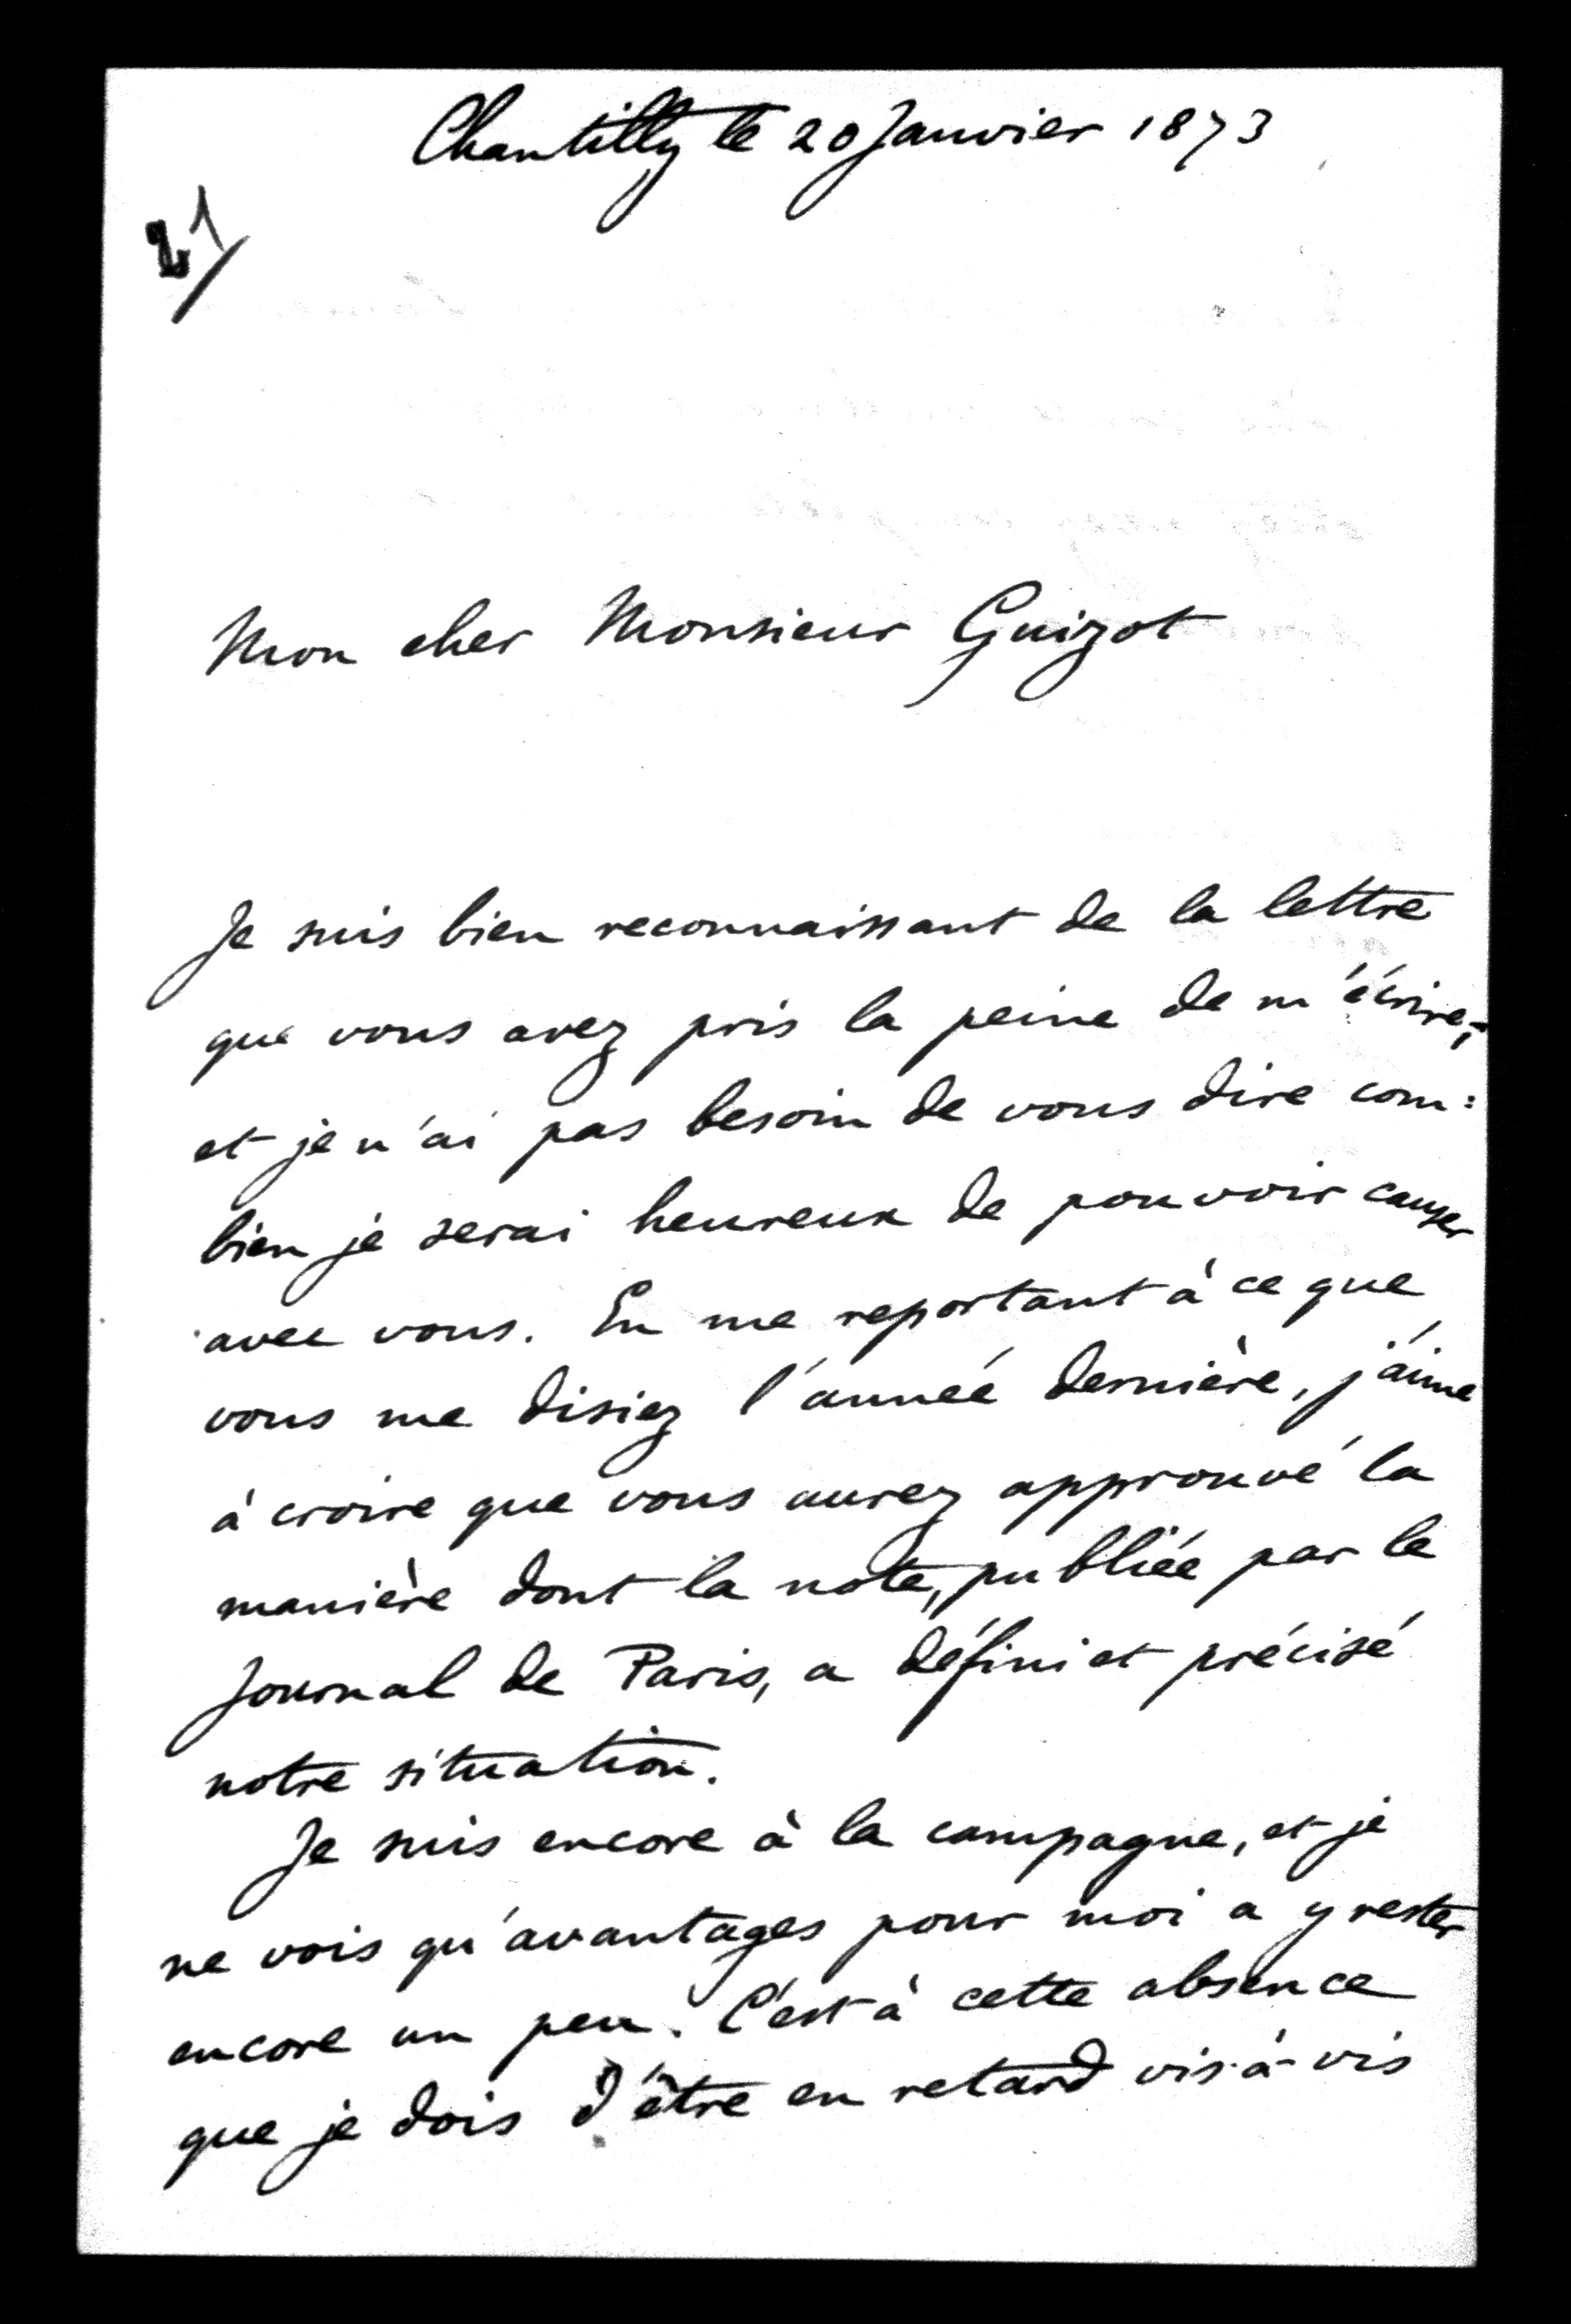 Chantilly le 20 Janvier 1873
21
Mon cher Monsieur Guizot
Je suis bien reconnaissant de la lettre
que vous avez pris la peine de m'écrire,
et je n'ai pas besoin de vous dire com:
bien je serai heureux de pouvoir causer
avec vous. En me reportant à ce que
vous me disiez l'année dernière, j'aime
à croire que vous aurez approuvé la
manière dont la note, publiée par le
Journal de Paris, a défini et précisé
notre situation.
Je suis encore à la campagne, et je
ne vois qu'avantages pour moi a y rester
encore un peu. C'est à cette absence
que je dois d'être en retard vis-à-vis